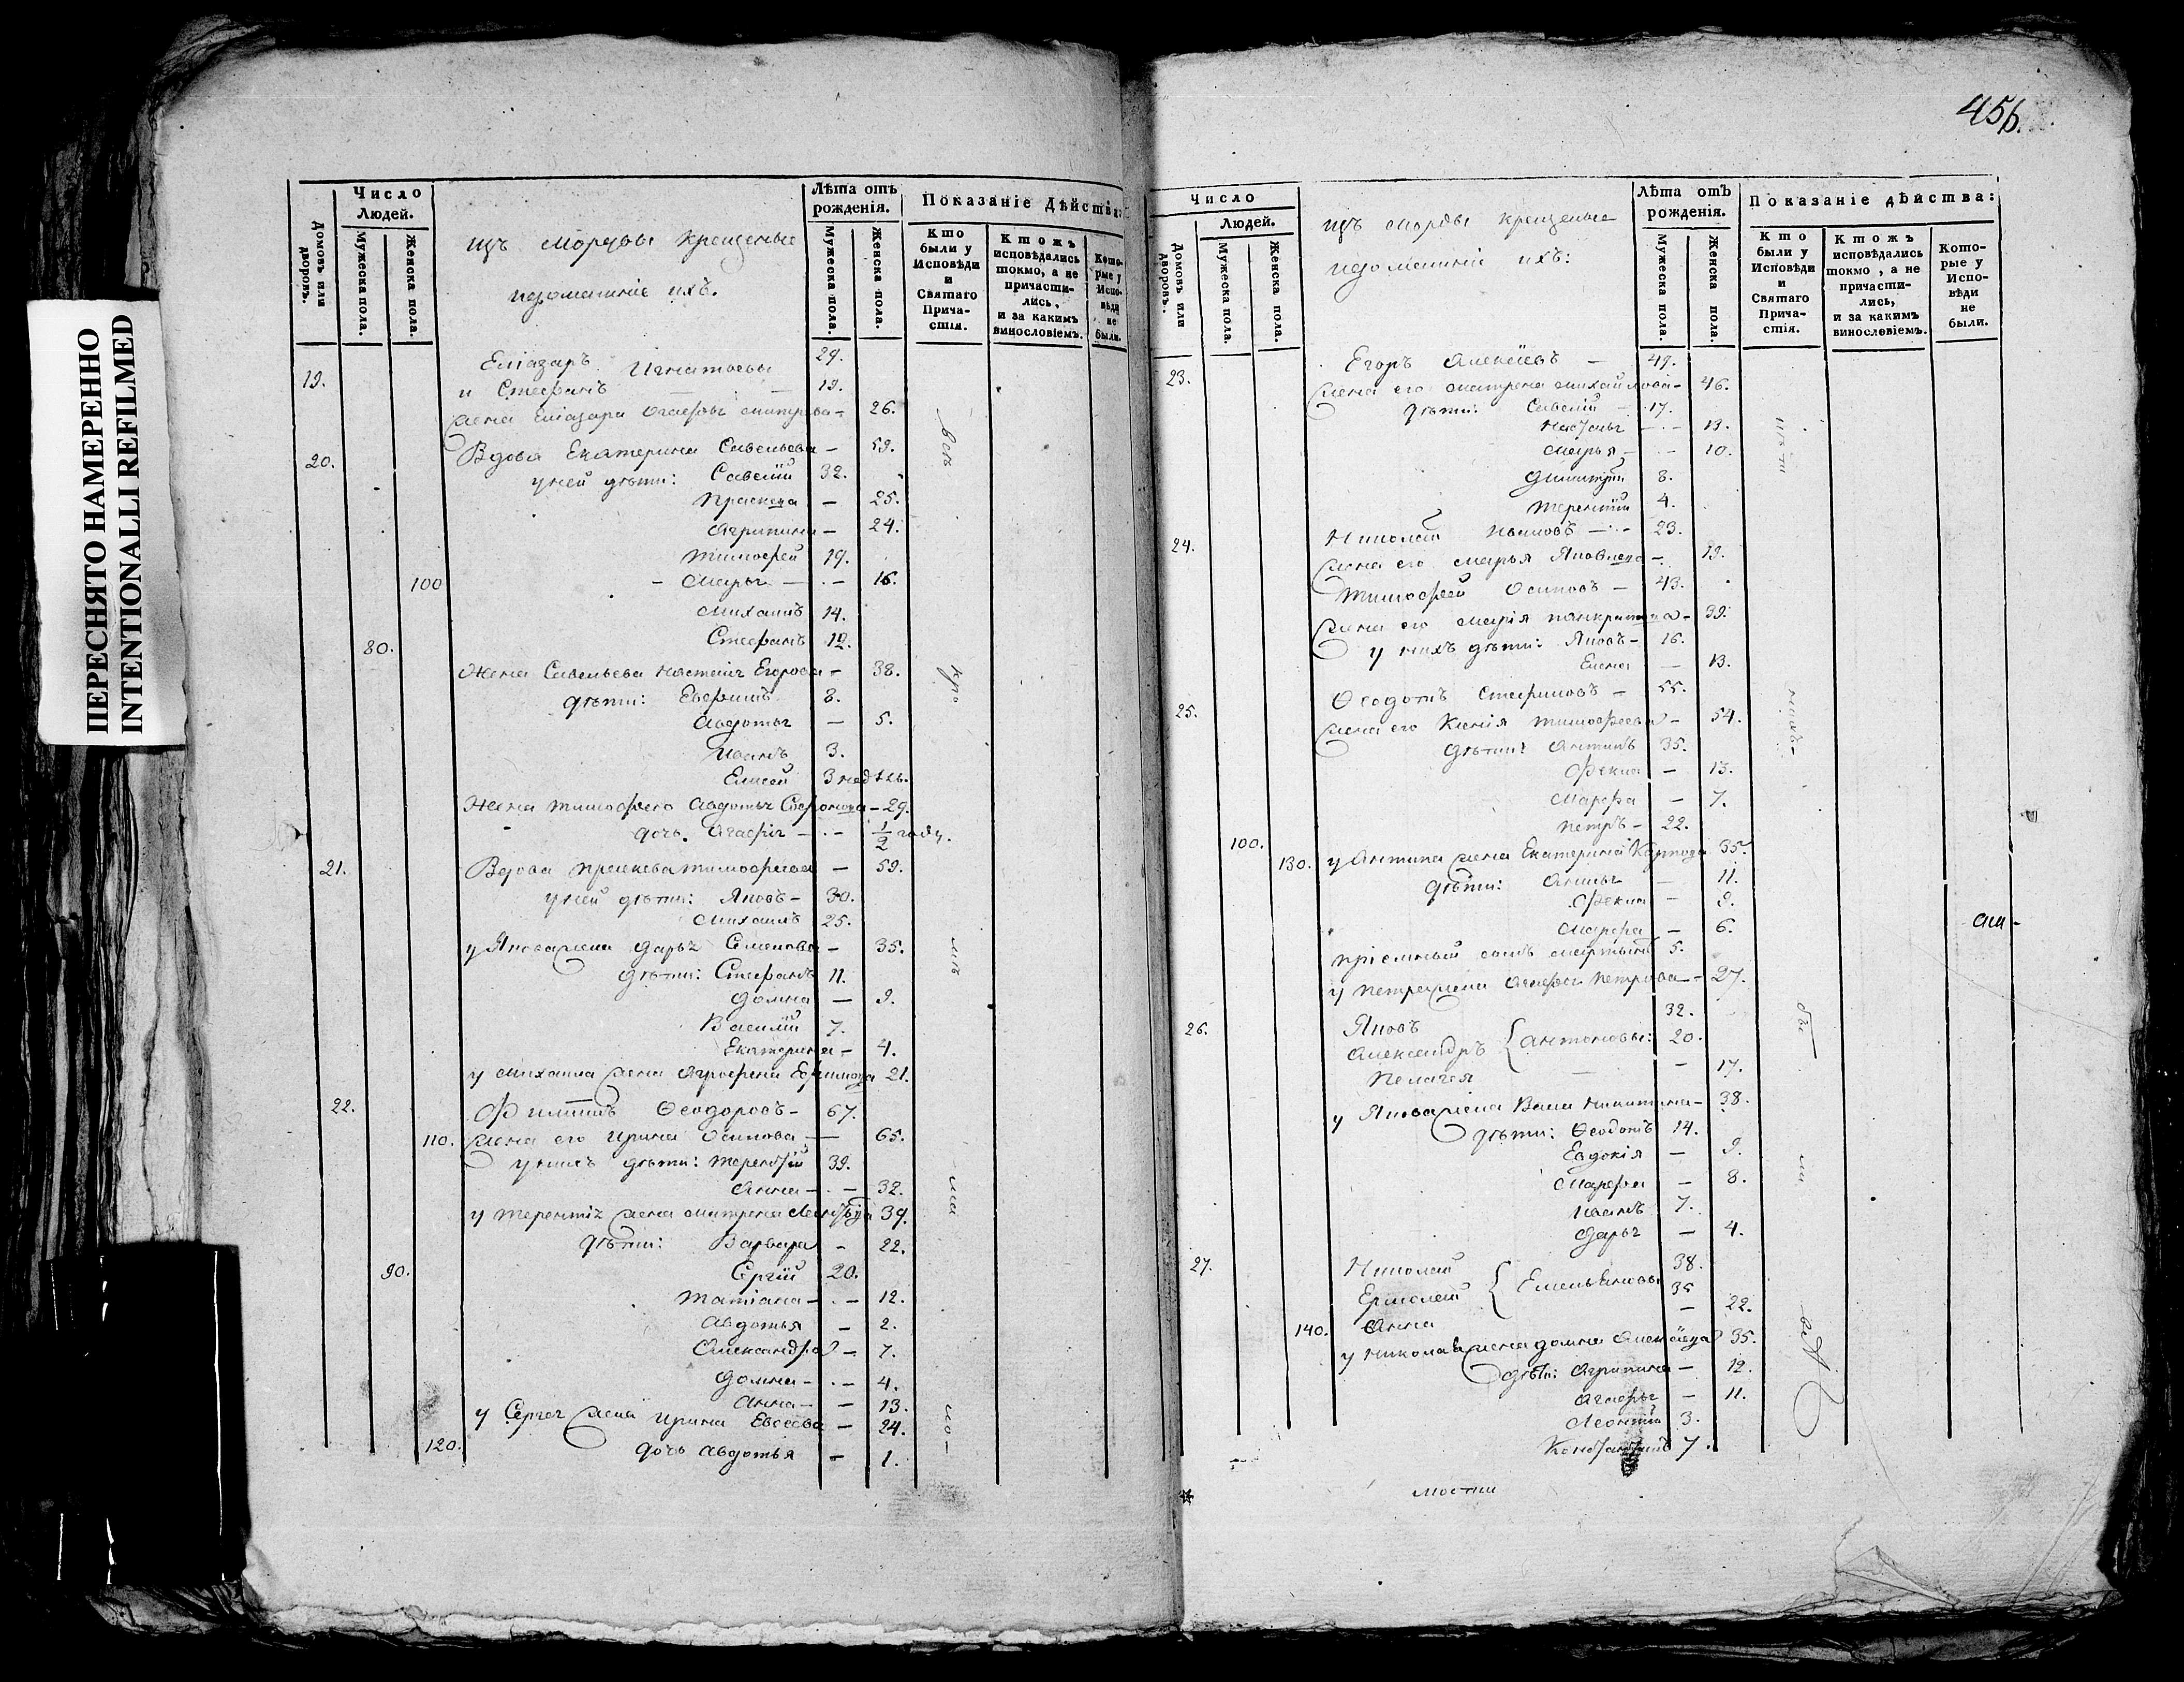 ПЕРЕСНЯТО НАМЕРЕННО
INTENTIONALLI REFILMED
Число
Людей.
Домовъ или дворовъ.
Мужеска пола.
Женска пола.
изъ Мордвы крещеные
идомашніе ихъ.
Лѣта отъ рожденія.
Мужеска пола.
Женска пола.
Показаніе Дѣйства:
Кто были у Исповѣди и Святаго Прича-стія.
Ктожъ исповѣдались токмо, а не причасти-лись, и за какимъ винословіемъ.
Кото-рые у Испо-вѣди не были.
19. Еліазаръ Игнатьевы 29.
и Стефанъ — 19.
жена Еліазара Агафья Дмитрева - 26.
20. Вдова Екатерина Савельева - 59.
уней дѣти: Савелій 32.
Праскева - 25.
Агрипина - 24.
Тимофей 19.
100 - Марья - 16.
Михаилъ 14.
80. Стефанъ 12.
Жена Савельева Настасія Егорова - 38.
дѣти: Евфимъ 8.
Авдотья - 5.
Иванъ 3.
Елисей 3 недѣль.
Жена Тимофея Авдотья Софонова - 29.
дочь Агафія - 1/2 году.
21. Вдова Праскева Тимофеева - 59.
уней дѣти: Яковъ - 30.
Михаилъ 25.
у Якова жена Дарья Семенова - 35.
дѣти: Стефанъ 11.
Домна - 9.
Василій 7.
Екатерина - 4.
у Михаила жена Агрофена Ефимова 21.
22. Филипъ Ѳеодоровъ - 67.
110. жена его Ирина Осипова - 65.
унихъ дѣти: Терентій 39.
Анна - 32.
у Терентія жена Матрена 39.
дѣти: Варвара - 22.
90. Сергій 20.
Татіана - 12.
Авдотья - 2.
Александра - 7.
Домна - 4.
Анна - 13.
у Сергея жена Ирина Евсеева - 24.
120. дочь Авдотья - 1.
456.
Число
Людей.
Домовъ или дворовъ.
Мужеска пола.
Женска пола.
изъ Мордвы крещеные
идомашніе ихъ:
Лѣта отъ рожденія.
Мужеска пола.
Женска пола.
Показаніе дѣйства:
Кто были у Исповѣди и Святаго Прича-стія.
Ктожъ исповѣдались токмо, а не причасти-лись, и за какимъ винословіемъ.
Кото-рые у Испо-вѣди не были.
23. Егоръ Алексѣевъ - 49.
жена его Матрена Михайлова - 46.
дѣти: Савелій - 17.
Настасья - 13.
Марья - 10.
Димитрій 8.
Терентій 4.
24. Николай Ивановъ - 23.
жена его Марья Яковлева - 19.
Тимофей Осиповъ - 43.
жена его Марія Панкратова - 39.
у нихъ дѣти: Яковъ - 16.
Елена - 13.
25. Ѳеодотъ Стефановъ - 55.
жена его Ксенія Тимофеева - 54.
дѣти: Антипъ 35.
Фекла - 13.
Марфа - 7.
100. Петръ - 22.
130. у Антипа жена Екатерина Карпова 35.
дѣти: 11.
Фекла - 9.
Марфа - 6.
пріемный сынъ Мартынъ 5.
у Петра жена Агафья Петрова - 27.
26. Яковъ 32.
Александръ { Антоновы: 20.
Пелагея - 17.
у Якова жена Никитина - 38.
дѣти: Ѳеодотъ 14.
Евдокія - 9.
Марфа - 8.
Иванъ 7.
Дарья - 4.
27. Николай 38.
Ермолай { Емельяновы 35
140. Анна - 22.
у Николая жена Домна Алексѣева 35.
дѣти: Агрипина - 12.
Агафья - 11.
Леонтій 3.
Константинъ 7.